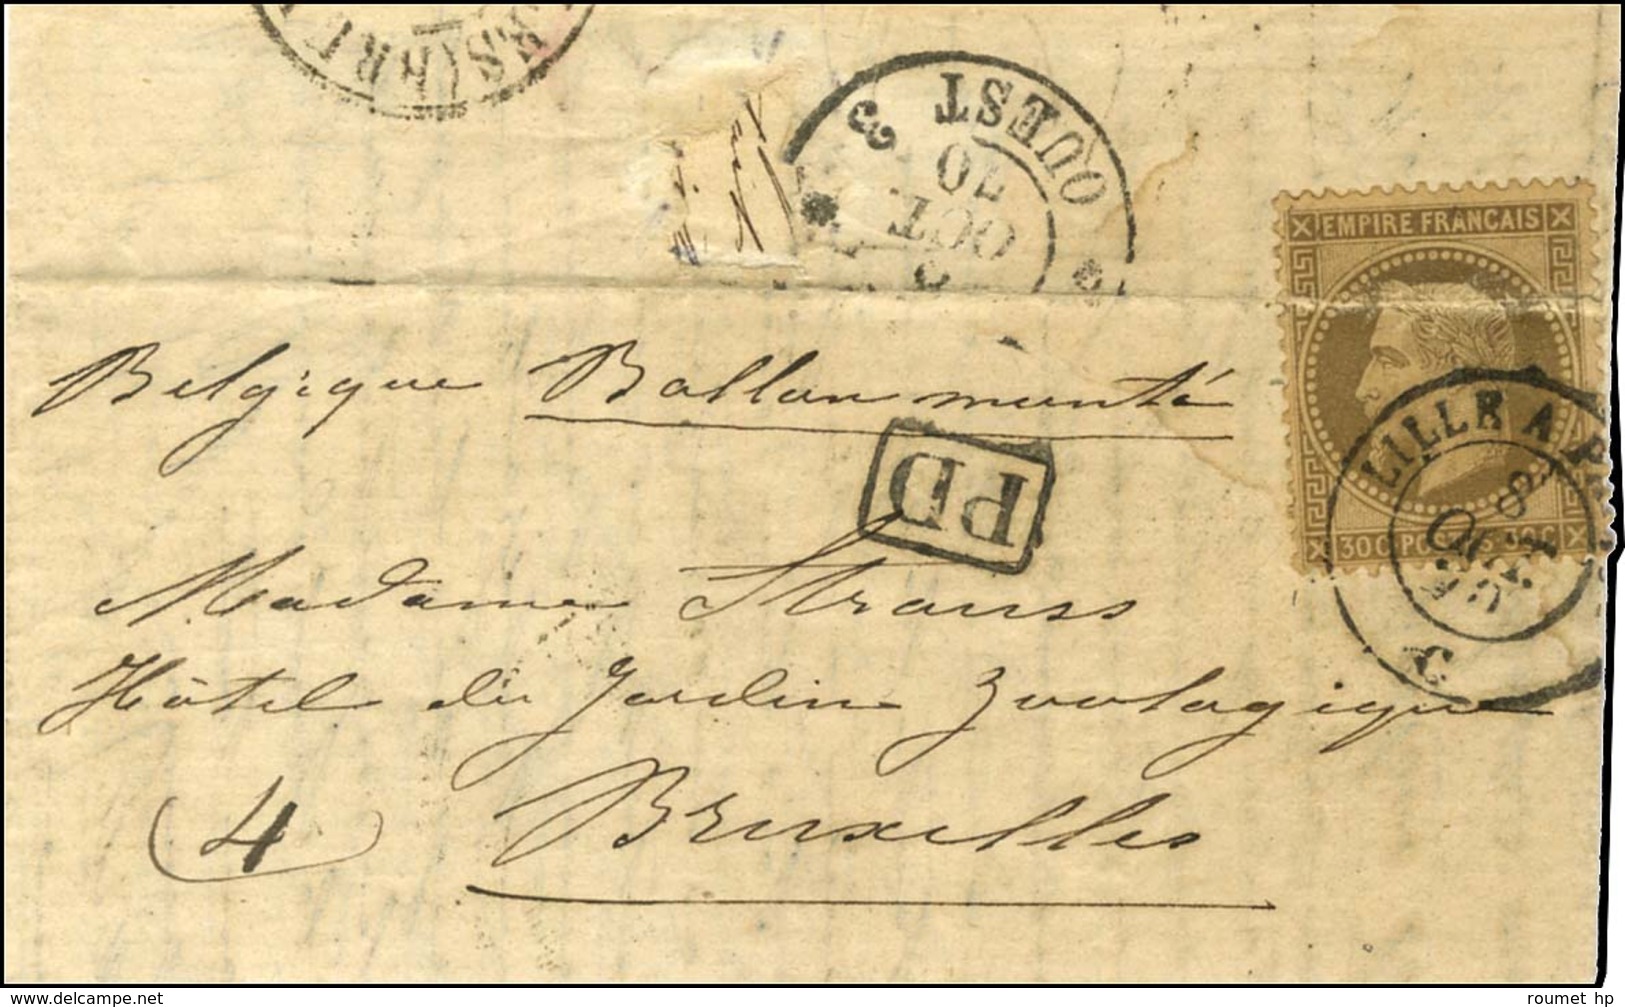 OUEST
3
OCT
70
EMPIRE FRANCAIS
Belgique Ballon monté
PD
LILLE A
8
OCT.
70
30C POSTES 30C
C
Madame Strauss
Hôtel du Jardin Zoologique
(4) Bruxelles
delcampe.net
roumet hp